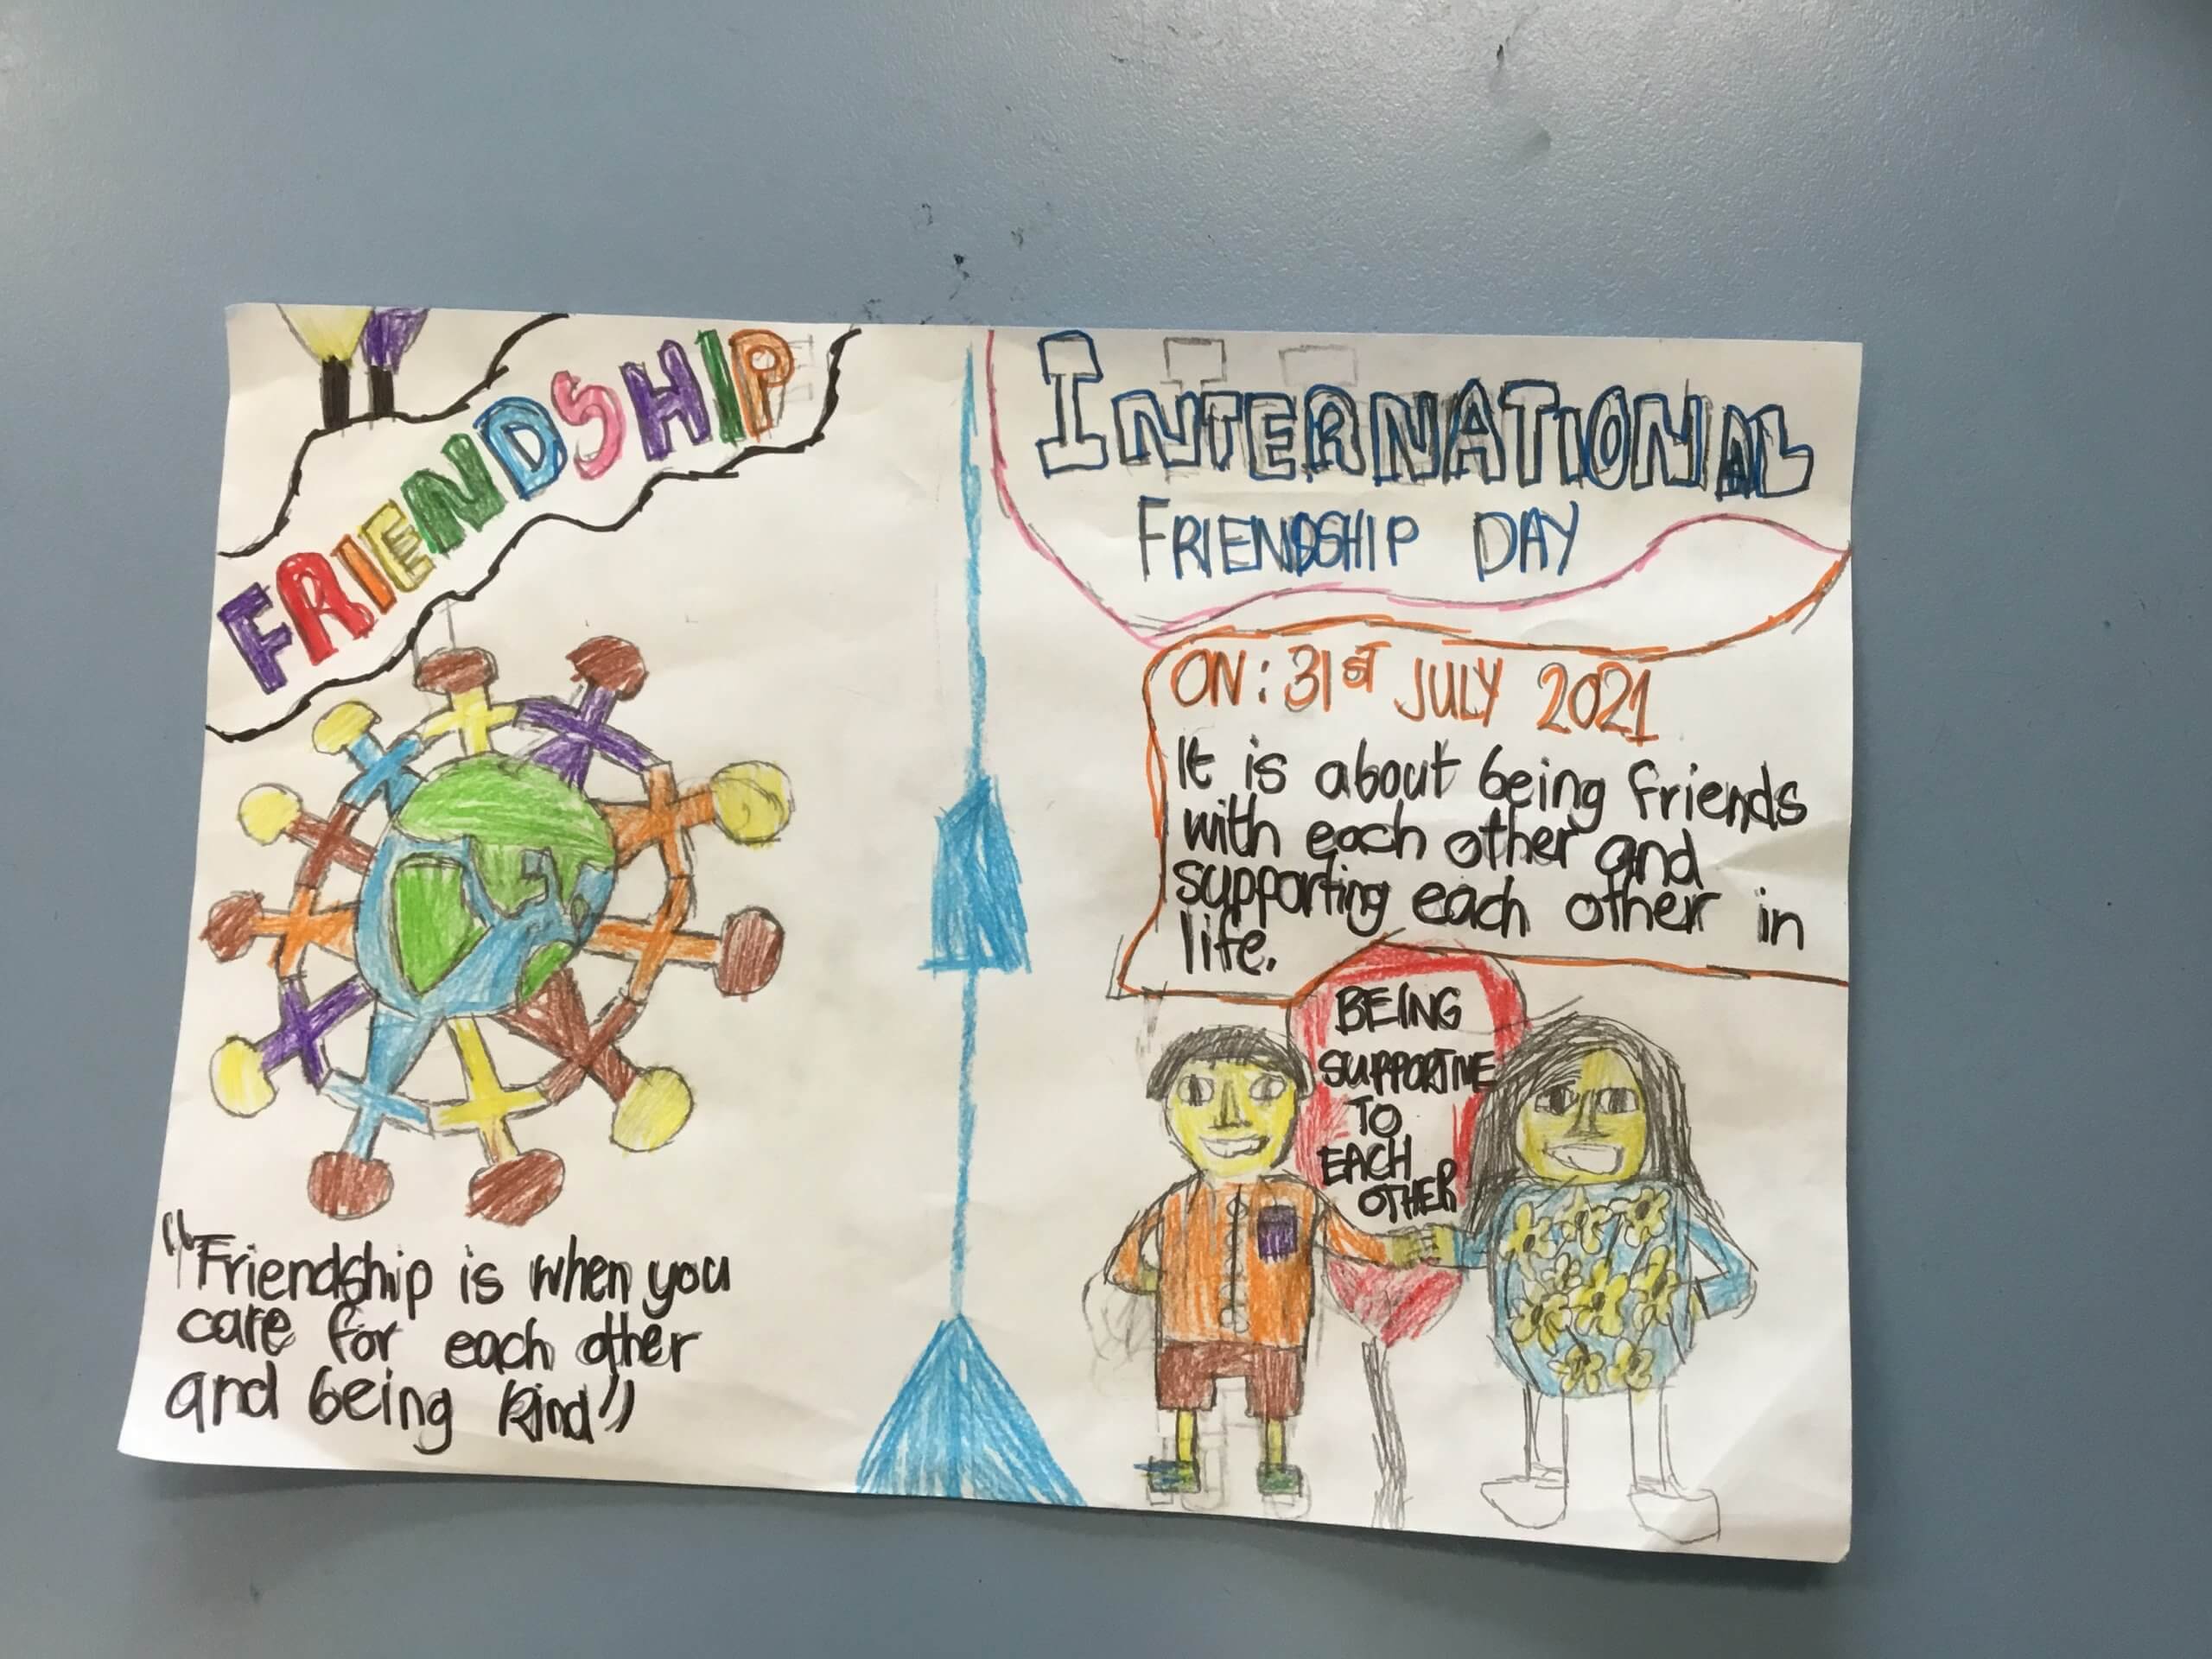 FRIENDSHIP
"Friendship is when you
care for each other
and being kind"
INTERNATIONAL
FRIENDSHIP DAY
ON: 31st JULY 2021
It is about being friends
with each other and
supporting each other in
life.
BEING
SUPPORTIVE
TO
EACH
OTHER